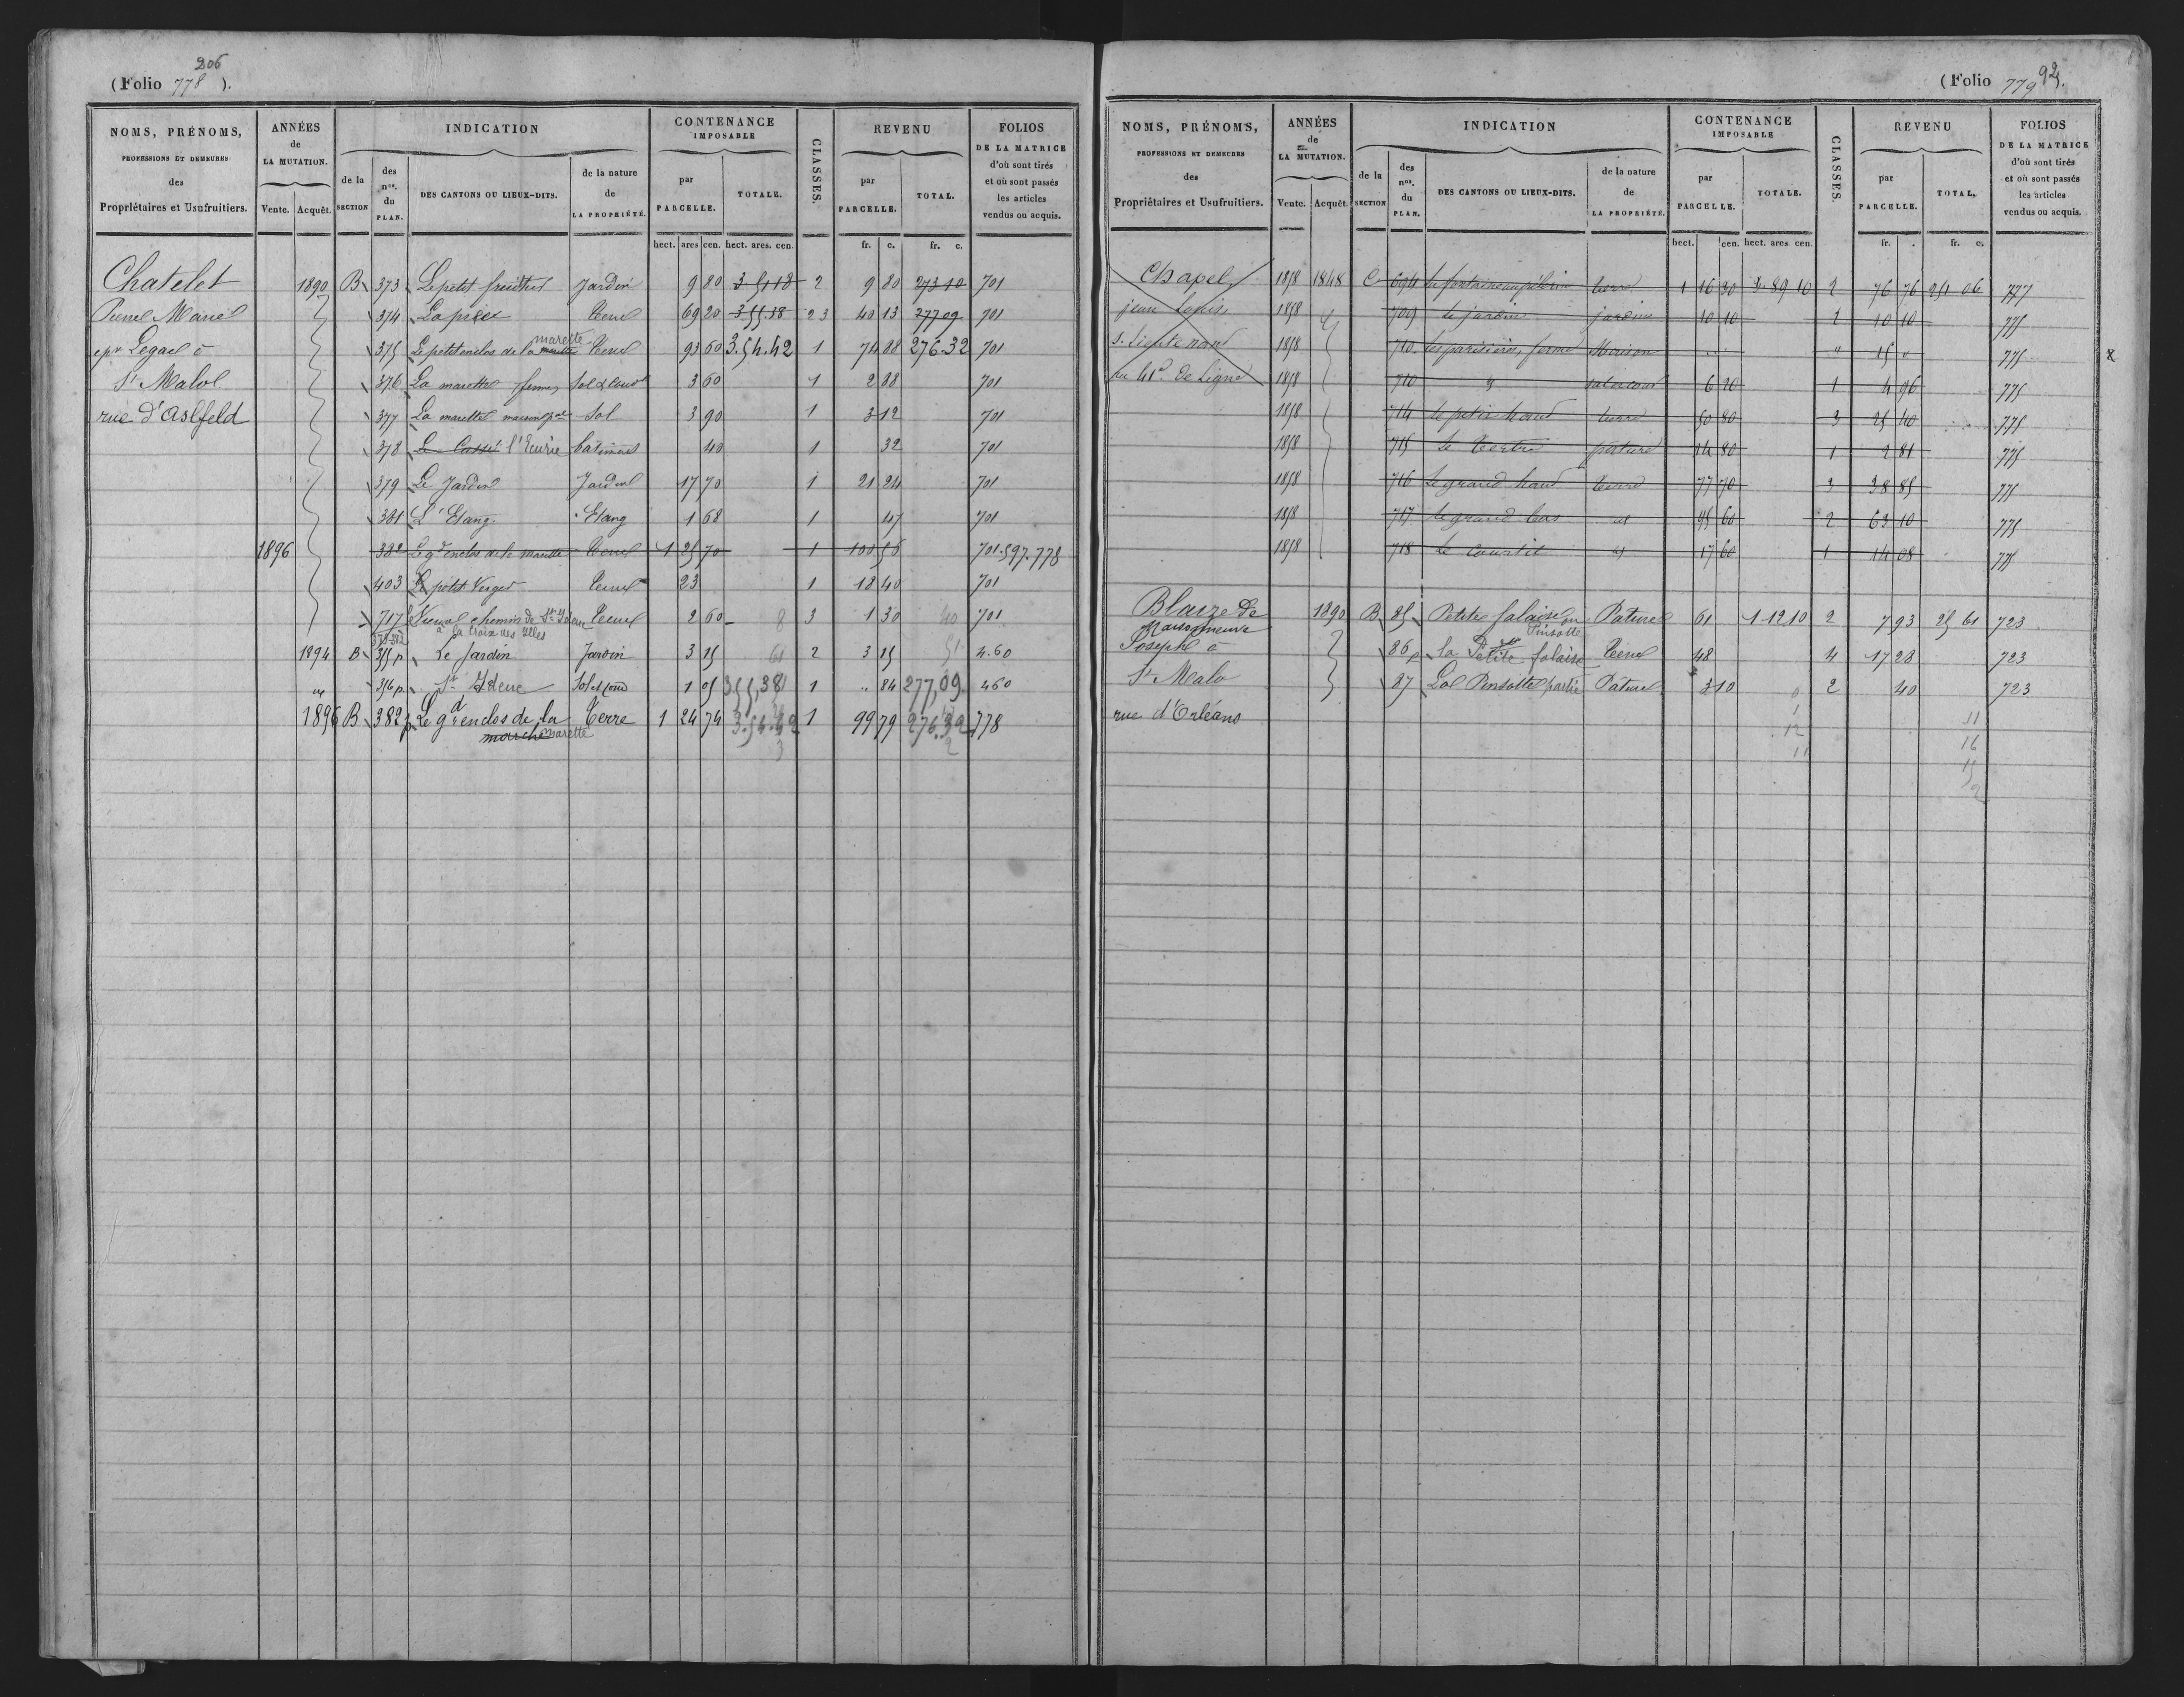 206
(Folio 778 ).
NOMS, PRÉNOMS,
PROFESSIONS ET DEMEURES
des
Propriétaires et Usufruitiers.
ANNÉES
de
LA MUTATION.
Vente. Acquêt.
INDICATION
de la
SECTION
des
nos.
du
PLAN.
DES CANTONS OU LIEUX-DITS.
de la nature
de
LA PROPRIÉTÉ.
CONTENANCE
IMPOSABLE
par
PARCELLE.
TOTALE.
hect. ares cen. hect. ares. cen.
CLASSES.
REVENU
par
PARCELLE.
TOTAL.
fr. c. fr. c.
FOLIOS
DE LA MATRICE
d'où sont tirés
et où sont passés
les articles
vendus ou acquis.
Chatelet 1890 B 373 Le petit Jardin 9 80 2 9 80 273 10 701
Marie 374 69 20 3 55.38 2 3 40 13 277 09 701
Legac à 375 Le petit enclos de la marette 93 60 3.54.42 1 74 88 276.32 701
St Malo 376 La marette ferme, Sol & cour 3 60 1 2 88 701
rue d'Asfeld 377 La marette maison Sol 3 90 1 3 12 701
378 l'Ecurie batiment 40 1 32 701
379 Le Jardin Jardin 17 70 1 21 24 701
381 L'Etang Etang 1 68 1 47 701
1896 382 Le gd enclos de la marette 1 25 70 1 100 56 701.597.778
403 Le petit Verger 23 1 18 40 701
717 chemin de St Ideuc 2 60 8 3 1 30 40 701
à la Croix des
373-382
1894 B 355 p Le Jardin Jardin 3 15 61 2 3 15 51 460
356 p. St Ideuc Sol et cour 1 05 355,38 1 .. 84 277,09 460
1896 B 382 p Le gd enclos de la Terre 1 24 74 3.54.42 1 99 79 276.32 778
marche marette 3 2
(Folio 779 ).
92
NOMS, PRÉNOMS,
PROFESSIONS ET DEMEURES
des
Propriétaires et Usufruitiers.
ANNÉES
de
LA MUTATION.
Vente. Acquêt.
INDICATION
de la
SECTION
des
nos.
du
PLAN.
DES CANTONS OU LIEUX-DITS.
de la nature
de
LA PROPRIÉTÉ.
CONTENANCE
IMPOSABLE
par
PARCELLE.
TOTALE.
hect. cen. hect. ares. cen.
CLASSES.
REVENU
par
PARCELLE.
TOTAL.
fr. . fr. c.
FOLIOS
DE LA MATRICE
d'où sont tirés
et où sont passés
les articles
vendus ou acquis.
Chapel 1858 1848 C 694 la fontaine au pélerin terre 1 16 30 3.89 10 2 76 76 251 06 777
jean Louis, 1858 709 le jardin jardin 10 10 1 10 10 775
s. Lieutenant 1858 710 ferme Maison " 15 " 775
au 41e de Ligne 1858 710 sol et cour 6 20 1 4 96 775
1858 714 le petit haut terre 50 80 3 25 40 775
1858 715 le tertre pature 14 80 1 2 81 775
1858 716 le grand haut terre 77 70 3 38 85 775
1858 717 le grand bas id 95 60 2 63 10 775
1858 718 le courtil id 17 60 1 14 08 775
Blaize de 1890 B 85 Petite falaise ou Pature 61 1 12 10 2 7 93 25 61 723
Maisonneuve Pinsotte
Joseph à 86 p la Petite falaise 48 4 17 28 723
St Malo 87 La Pinsotte partie Pature 3 10 0 2 40 723
rue d'Orléans 1 11
12 16
11 15
2